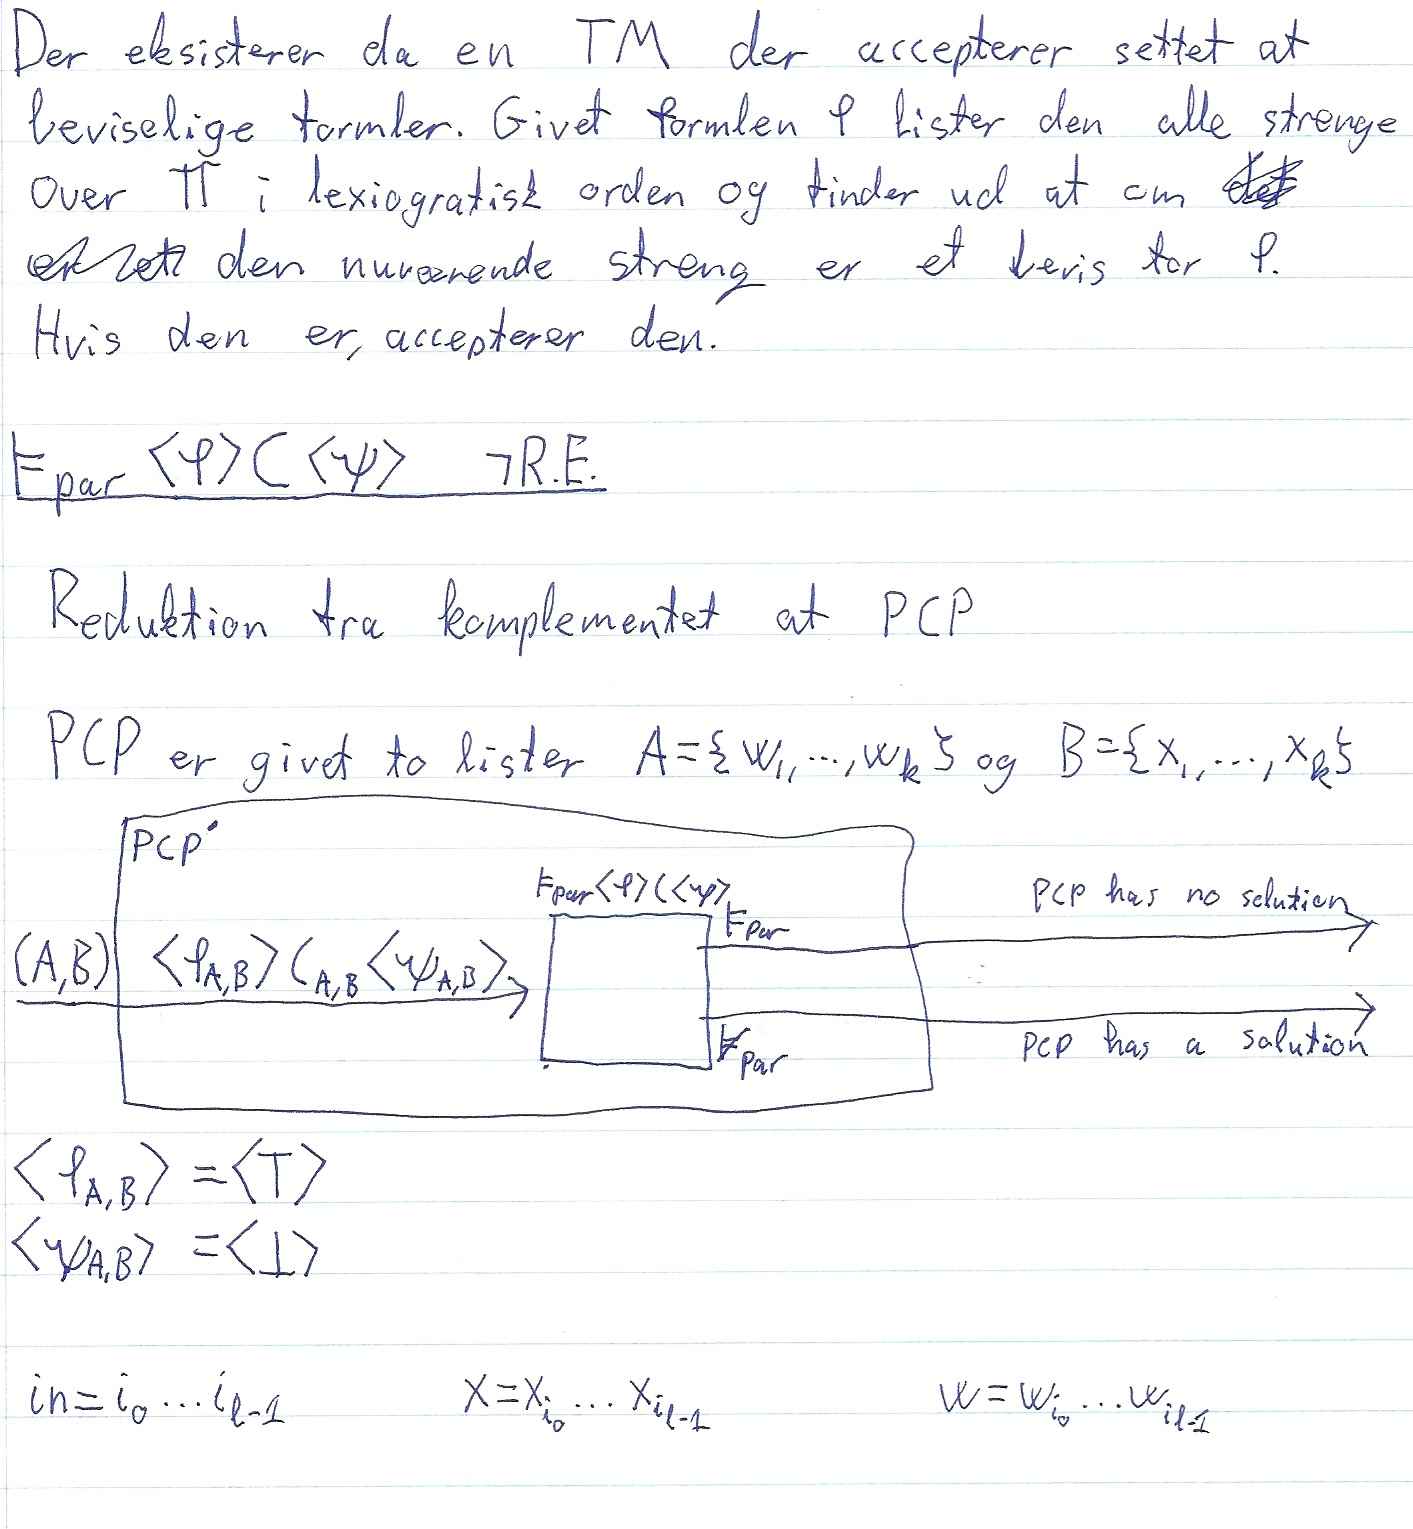 Der eksisterer da en TM der accepterer settet af
beviselige formler. Givet formlen φ lister den alle strenge
over Π i lexiografisk orden og finder ud af om
den nuværende streng er et bevis for φ.
Hvis den er, accepterer den.
⊨par ⟨φ⟩C⟨ψ⟩ ¬R.E.
Reduktion fra komplementet af PCP
PCP er givet to lister A={w₁,...,wₖ} og B={x₁,...,xₖ}
PCP'
⊨par⟨φ⟩C⟨ψ⟩
PCP has no solution
⊨par
(A,B) ⟨φA,B⟩ CA,B ⟨ψA,B⟩
⊭par
PCP has a solution
⟨φA,B⟩ =⟨⊤⟩
⟨ψA,B⟩ =⟨⊥⟩
in=i₀...iℓ-1 X=Xi₀...Xiℓ-1 w=wi₀...wiℓ-1